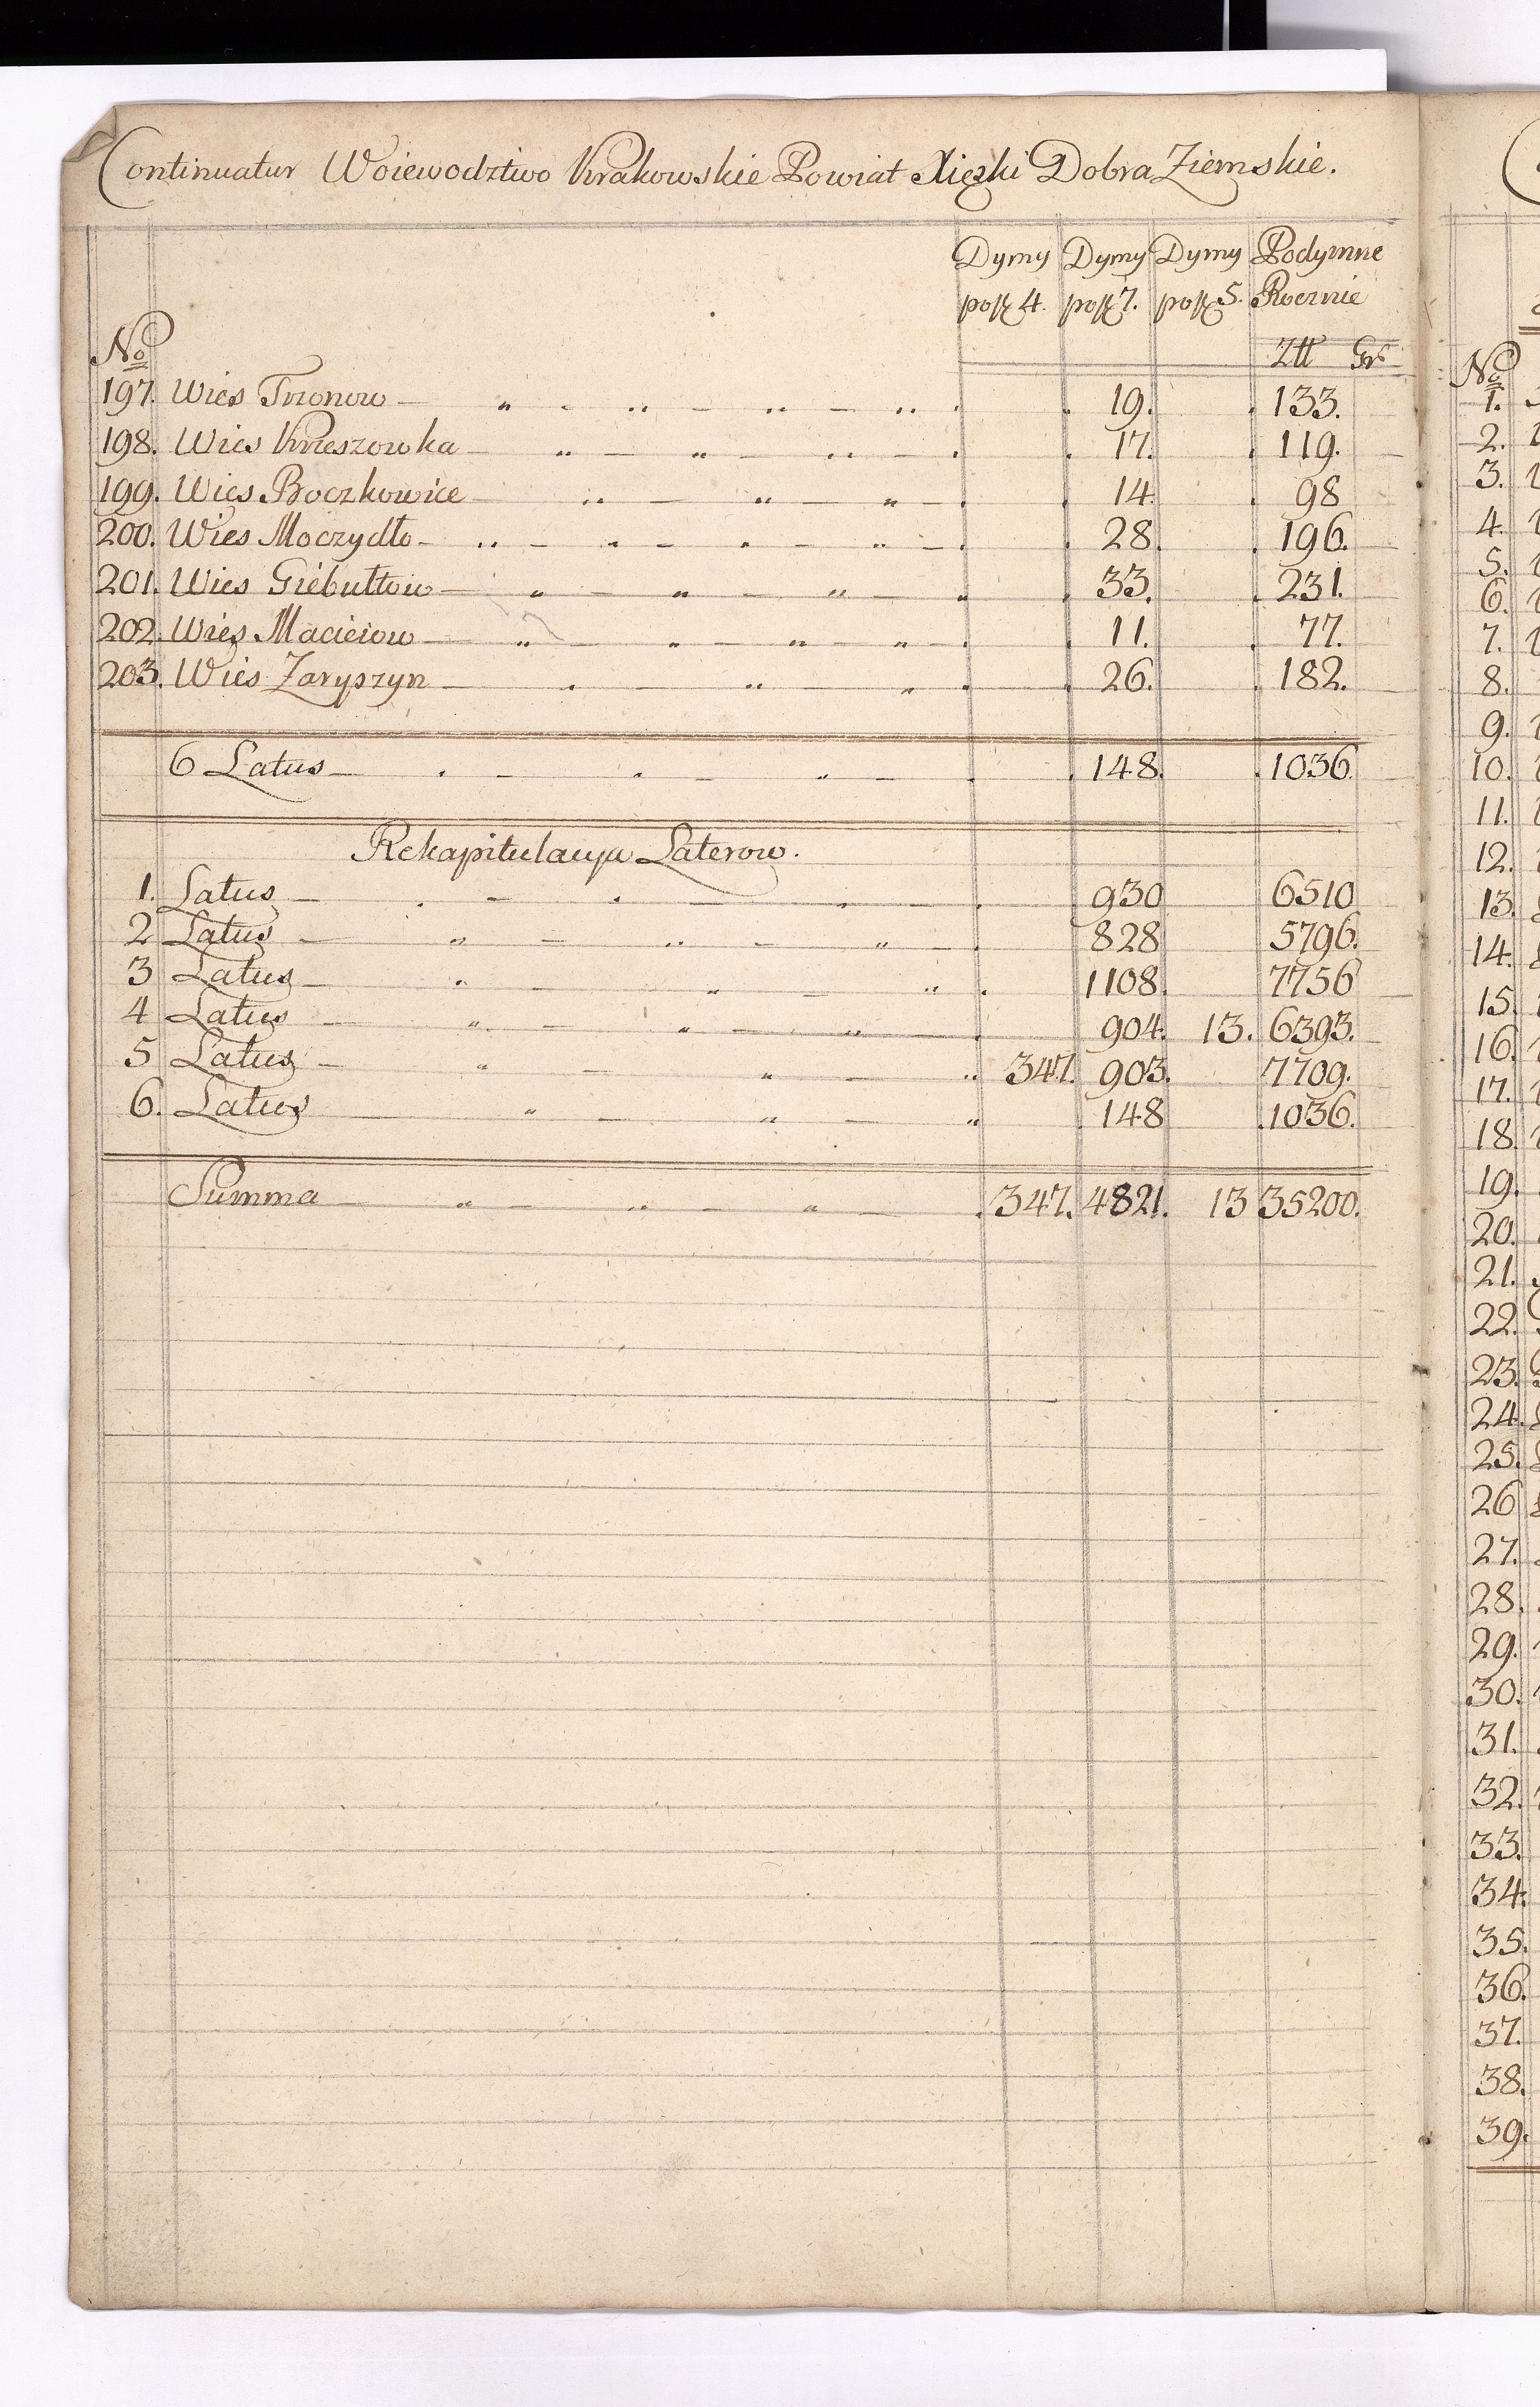 Continuatur Woiewodztwo Krakowskie Powiat Xięzki Dobra Ziemskie.
Dymy Dymy Dymy Podymne
po ƶ 4. po ƶ 7. po ƶ 5. Rocznie
No Złł Gr
197. Wies Trzonow 19. 133.
198. Wies Krzeszowka 17. 119.
199. Wies Boczkowice 14. 98
200. Wies Moczydło 28. 196.
201. Wies Giebułtow 33. 231.
202. Wies Macieiow 11. 77.
203. Wies Zaryszyn 26. 182.
6 Latus 148. 1036.
Rekapitulacya Laterow.
1. Latus 930 6510
2 Latus 828 5796.
3 Latus 1108. 7756
4 Latus 904. 13. 6393.
5 Latus 347. 903. 7709.
6. Latus 148 1036.
Summa 347. 4821. 13 35200.
No
1.
2.
3.
4.
5.
6.
7.
8.
9.
10.
11.
12.
13.
14.
15.
16.
17.
18.
19.
20.
21.
22.
23.
24.
25.
26
27.
28.
29.
30.
31.
32.
33.
34.
35.
36.
37.
38.
39.